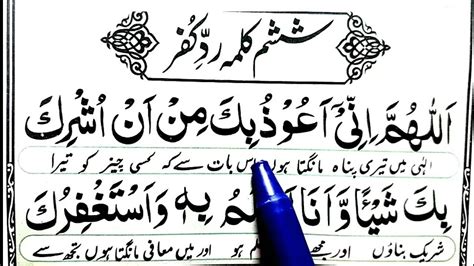 ششم کلمہ ردِّ کفر
اَللّٰهُمَّ اِنِّیْۤ اَعُوْذُ بِكَ مِنْ اَنْ اُشْرِكَ
الٰہی میں تیری پناہ مانگتا ہوں اس بات سے کہ کسی چیز کو تیرا
بِكَ شَیْـًٔا وَّ اَنَا بِهٖ وَاَسْتَغْفِرُكَ
شریک بناؤں اور مجھے ہو اور میں معافی مانگتا ہوں تجھ سے